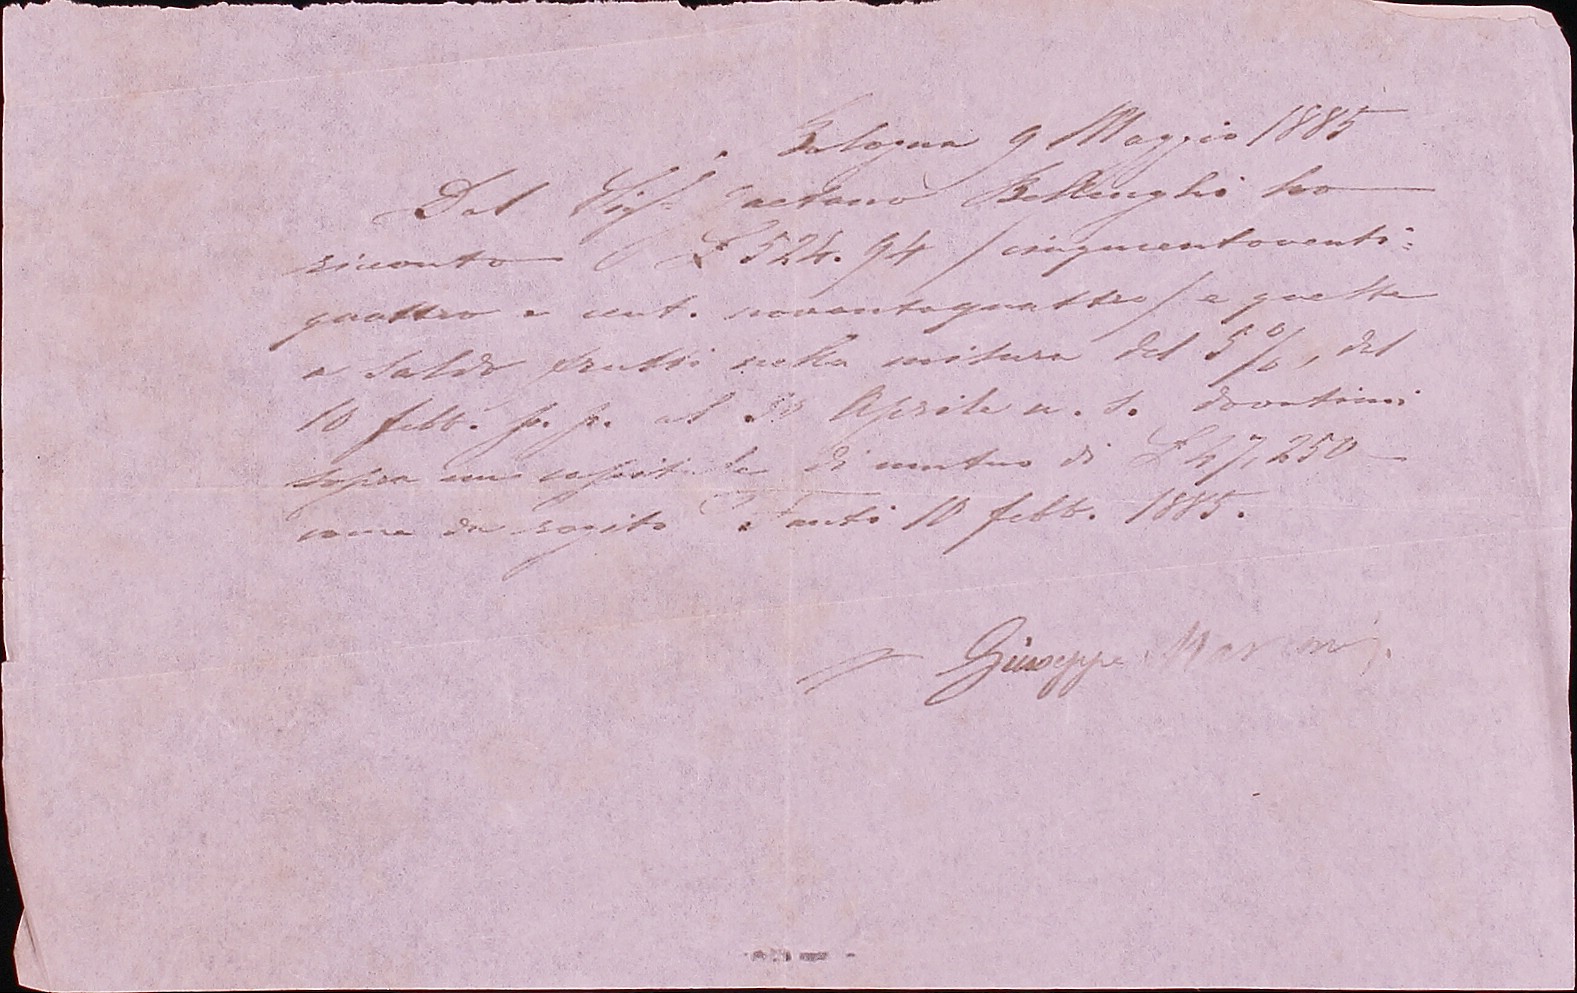 Bologna 9 Maggio 1885
Dal Sig.r Gaetano Bellenghi ho
ricevuto £ 524.94 / cinquecentoventi=
quattro e cent. novantaquattro / e queste
a saldo frutti nella misura del 5%, dal
10 febb. p. p. al 30 Aprile u. s. dovutimi
sopra un capitale di mutuo di £ 47,250
come da rogito Fanti 10 febb. 1885.
Giuseppe